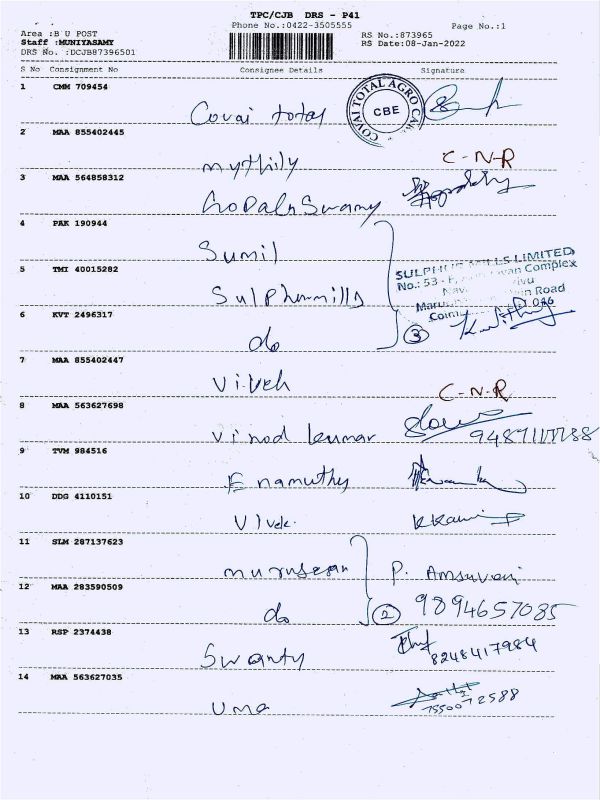 TPC/CJB DRS - P41
Phone No.:0422-3505555
Page No.:1
Area :B U POST
Staff :MUNIYASAMY
DRS No. :DCJB87396501
RS No.:873965
RS Date:08-Jan-2022
S No Consignment No Consignee Details Signature
1 CMM 709454
Covai total
COVAI TOTAL AGRO CARE
CBE
2 MAA 855402445
mythily C-N-R
3 MAA 564858312
GopalnSwamy
4 PAK 190944
Sumil
5 TMI 40015282
Sulphermills
SULPHUR MILLS LIMITED
No.: 53 - Complex
Road
6 KVT 2496317
do 3
7 MAA 855402447
Vivek C-N-R
8 MAA 563627698
Vinod kumar
9 TVM 984516
Enamuthy
10 DDG 4110151
Vivek.
11 SLM 287137623
murugesan P. Amsuveni
12 MAA 283590509
do 2 9894657085
13 RSP 2374438
Swanty 8248417984
14 MAA 563627035
Uma 7550072588